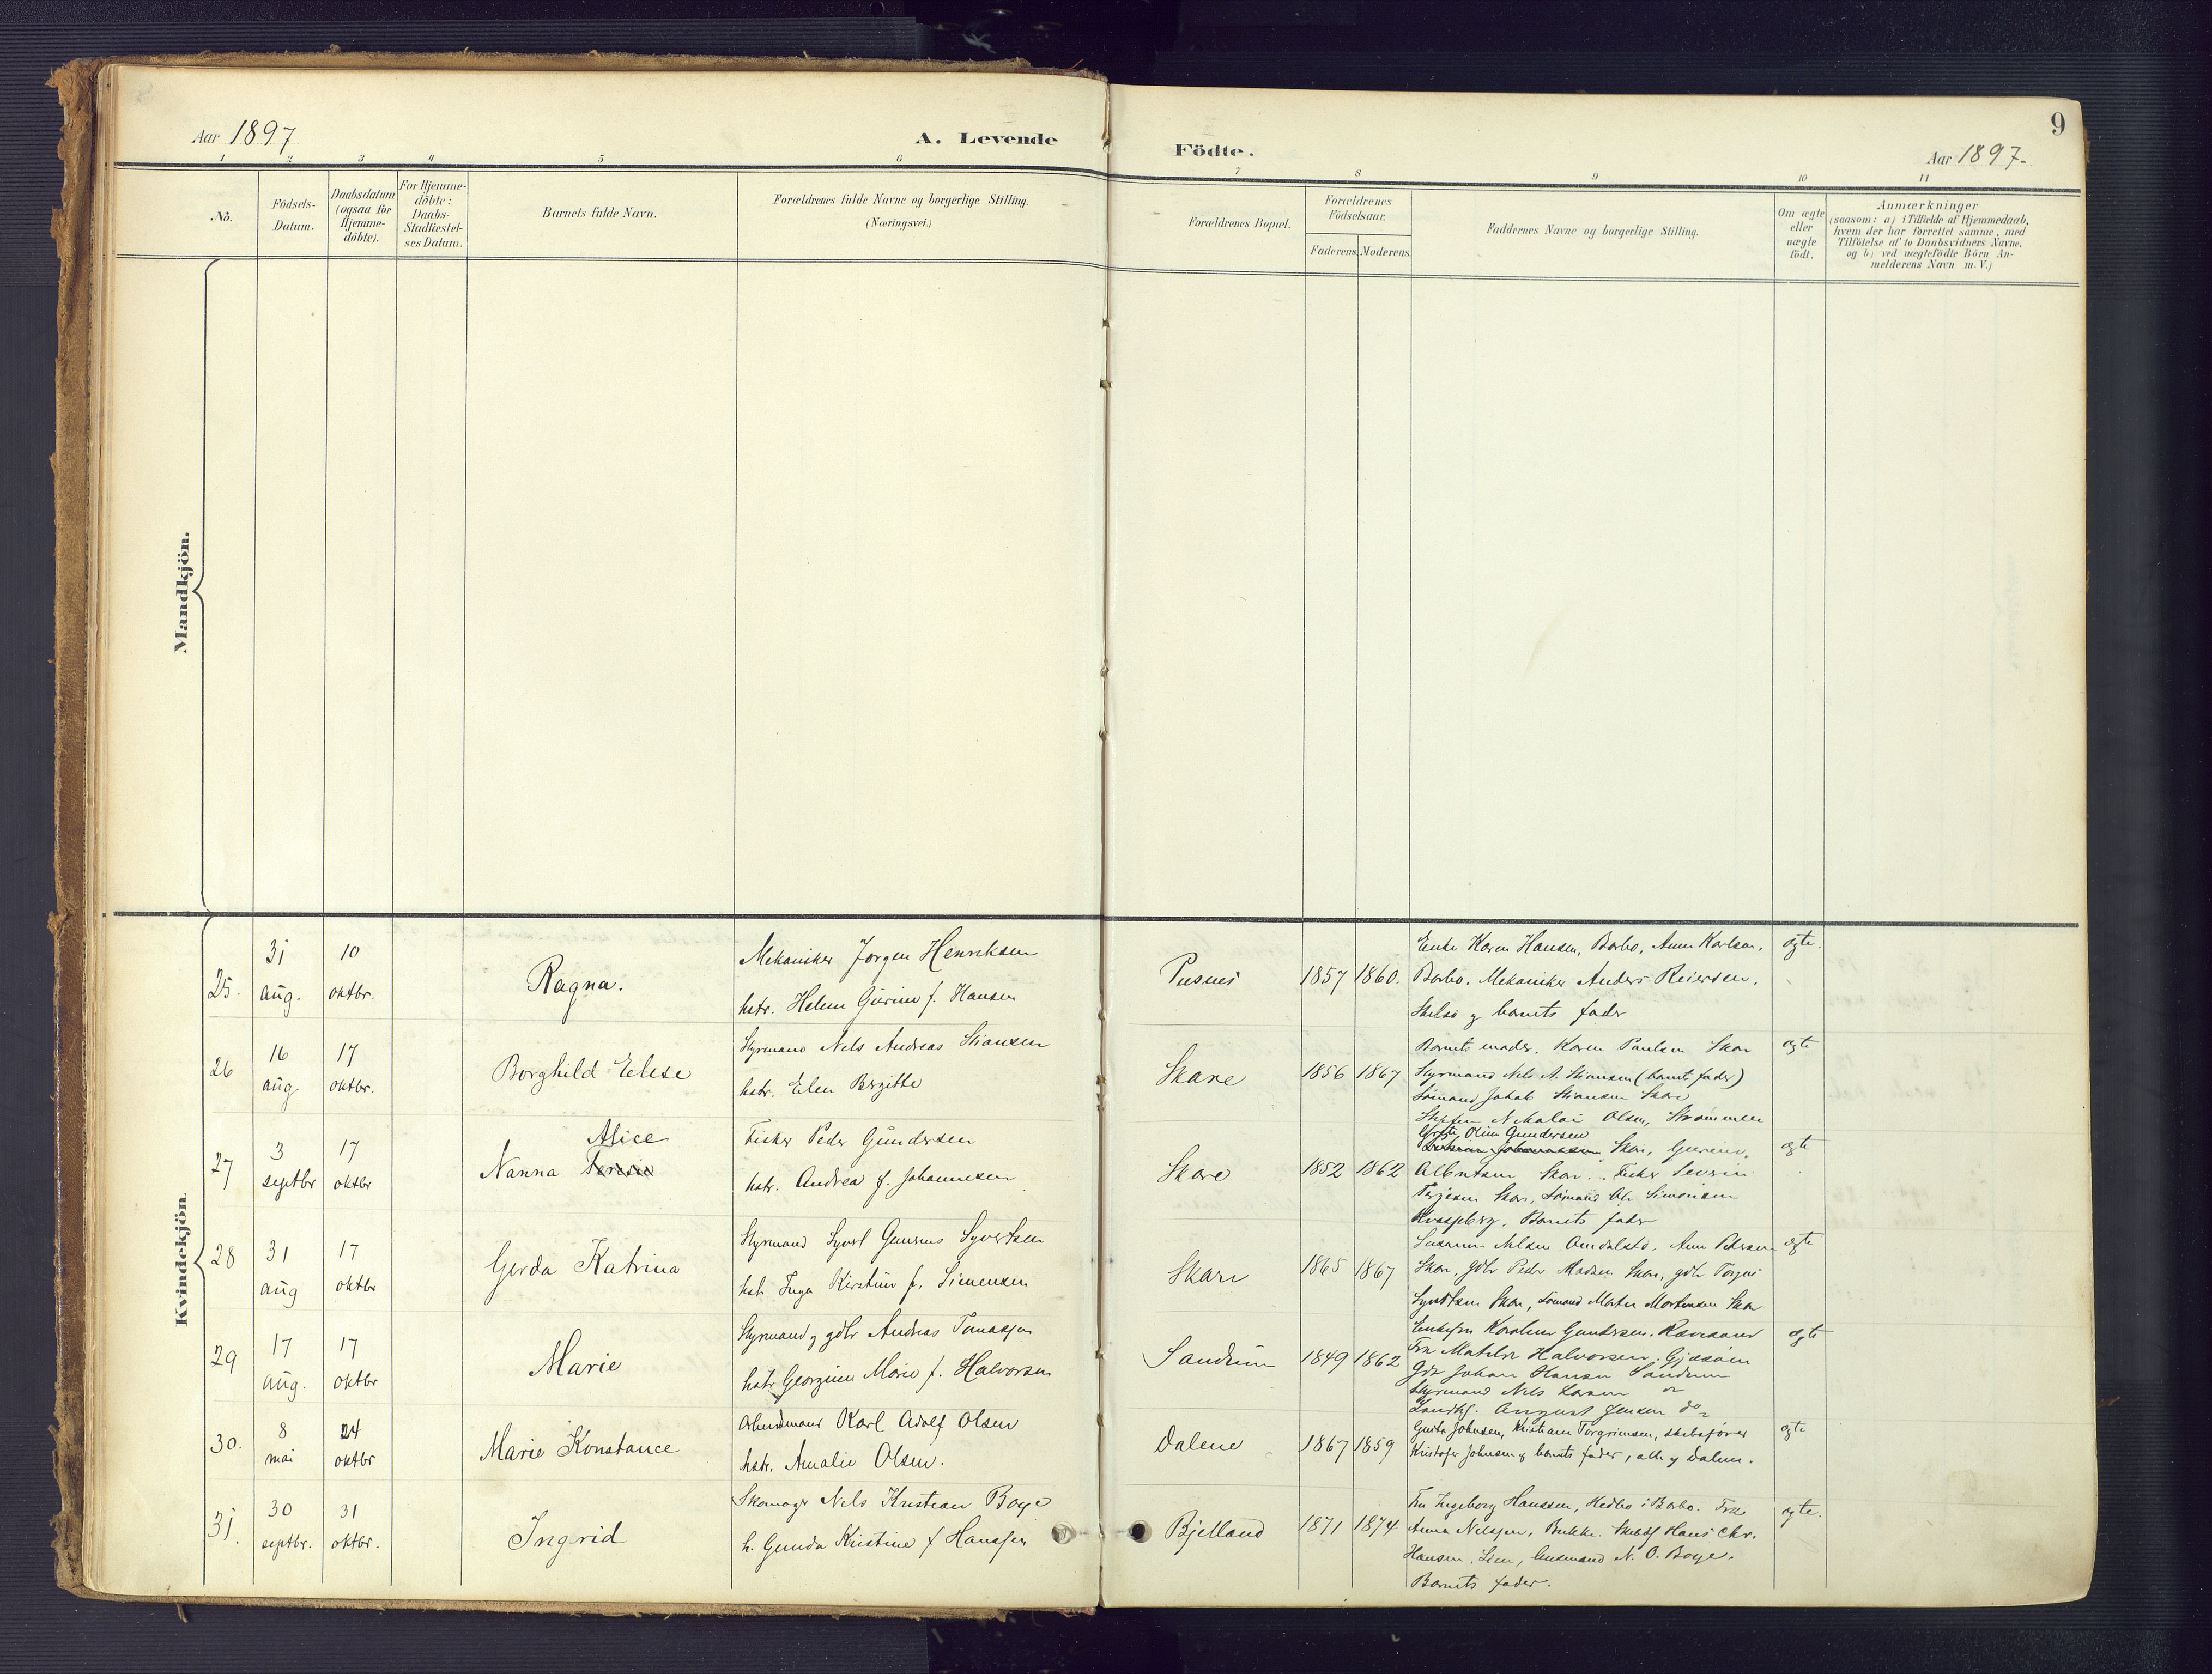 Aar 1897
A. Levende
Födte.
Aar 1897.
9
1 2 3 4 5 6 7 8 9 10 11
No.
Födsels-
Datum.
Daabsdatum
(ogsaa for
Hjemme-
döbte).
For Hjemme-
döbte:
Daabs-
Stadfæstel-
ses Datum.
Barnets fulde Navn.
Forældrenes fulde Navne og borgerlige Stilling.
(Næringsvei.)
Forældrenes Bopæl.
Forældrenes
Födselsaar.
Faderens. Moderens.
Faddernes Navne og borgerlige Stilling.
Om ægte
eller
uægte
födt.
Anmærkninger
(saasom: a) i Tilfælde af Hjemmedaab,
hvem der har forrettet samme, med
Tilföielse af to Daabsvidners Navne,
og b) ved uægtefödte Börn An-
melderens Navn m. V.)
Mandkjön.
Kvindekjön.
25.
31
aug.
10
oktbr.
Ragna.
Mekaniker Jørgen Henriksen
hstr. Helene Gurine f. Hansen
Pusnes
1857 1860.
Enke Karen Hansen, Barbo, Anne Karlsen,
Barbo. Mekaniker Anders Reiersen,
og barnets fader
ægte.
26
16
aug.
17
oktbr.
Borghild Elise
Styrmand Nels Andreas Stiansen
hstr. Elen Birgitte
Skare
1856 1867
Barnets moder, Karen Paulsen Skare
Styrmand Nils A. Stiansen (barnets fader)
Sømand Jakob Stiansen Skare
Nikolai Olsen, Strømmen
ægte
27
3
septbr
17
oktbr
Alice
Nanna
Fisker Peder Gundersen
hstr. Andrea f. Johannesen
Skare
1852 1862
Oline Gundersen
Skare, Gurine
Albertsen Skare. Fisker Severin
Terjesen Skare, Sømand Ole Simonsen
Barnets fader
ægte
28
31
aug
17
oktbr
Gerda Katrina
Styrmand Syvert Gunnus Syvertsen
hst. Inga Kirstine f. Simensen
Skare
1865 1867
Susanne Nelsen Amdalstø, Ane Petersen
Skare, gdbr Peder Madsen Skare, gdbr Torjus
Syvertsen Skare, Sømand Morten Mortensen Skare
ægte
29
17
aug.
17
oktbr
Marie
Styrmand og gdbr Andreas Tomassen
hstr Georgine Marie f. Halvorsen
Sandum
1849 1862
Karoline Gundersen.
Fru Matilde Halvorsen,
Gdr Johan Hansen Sandum
Styrmand Nels Larsen
August Jensen do
ægte
30.
8
mai
24
oktbr
Marie Konstance
Karl Adolf Olsen
hstr. Amalie Olsen.
Dalene
1867 1859
Gusta Johnsen, Kristiane Torgrimsen, skibsfører
Kristofer Johnsen & barnets fader, alle af Dalene.
ægte
31.
30
septbr.
31
oktbr.
Ingrid
Skomager Nels Kristian Boye
h. Gunda Kristine f Hanssen
Bjelland
1871 1874
Fru Ingeborg Hanssen, Hedbo i Barbo. Fru
Anna Nelssen, Hans Chr.
Hansen, N. O. Boye.
Barnets fader.
ægte.